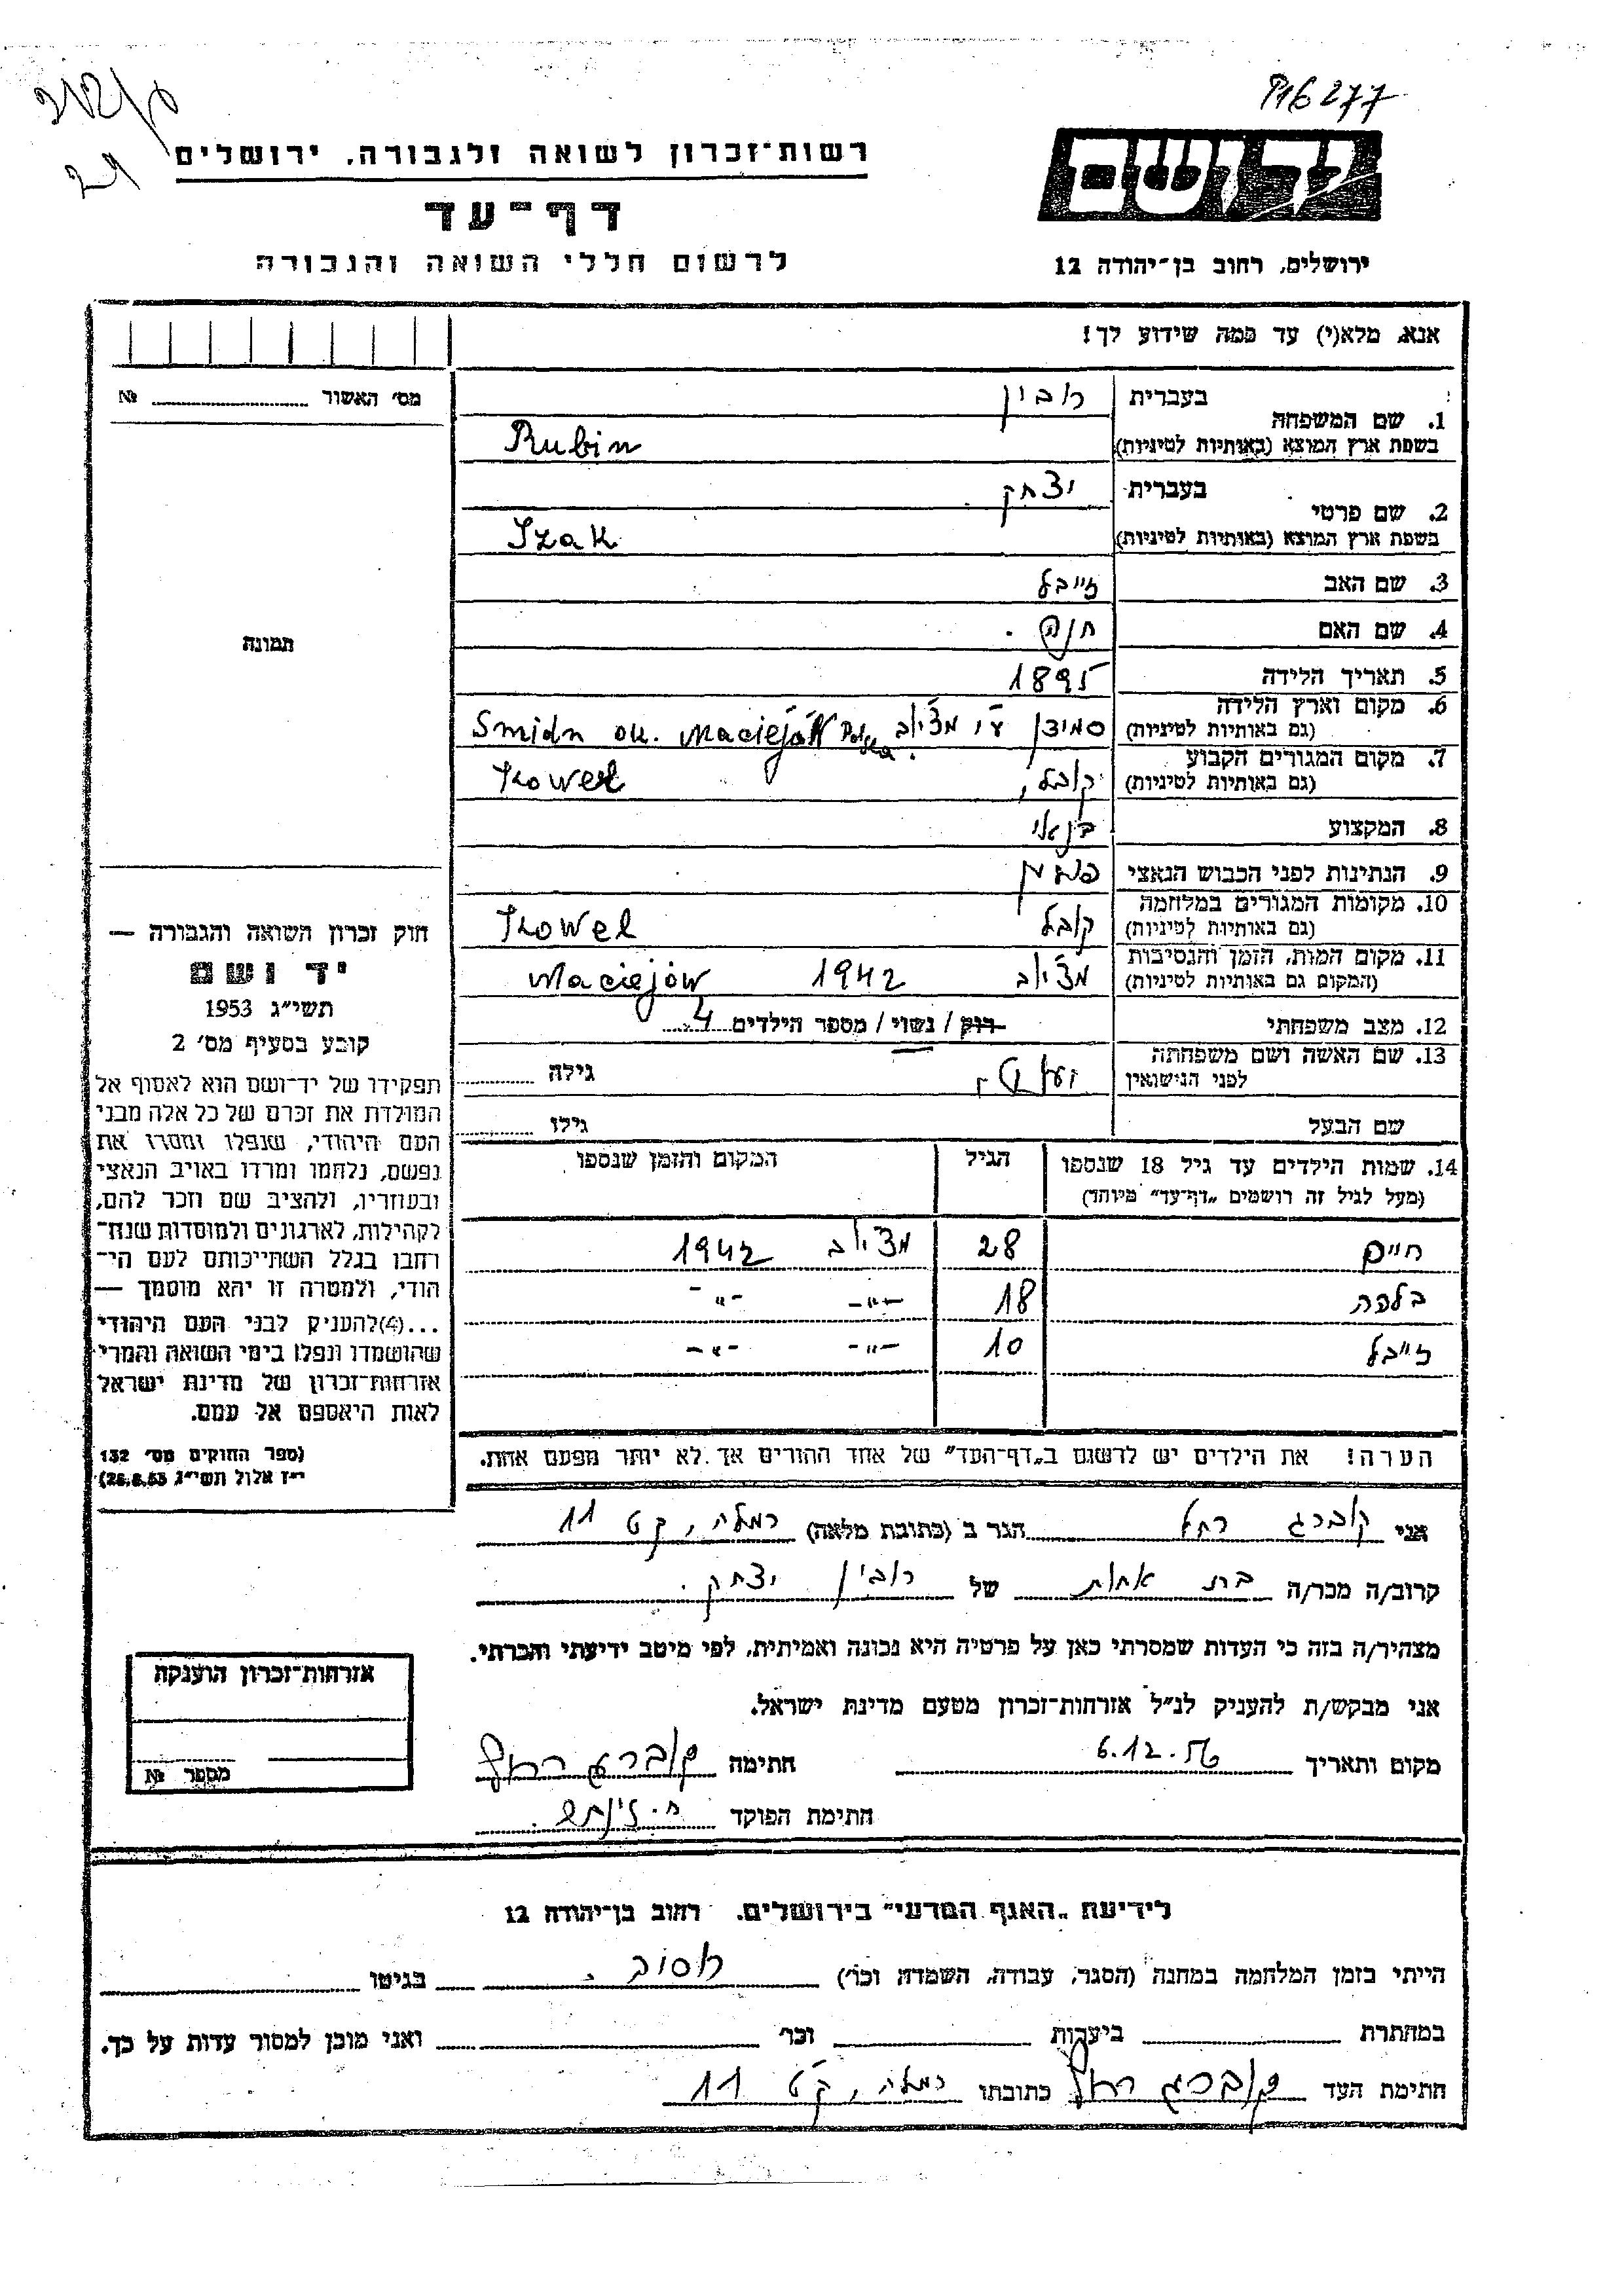 P16 277
רשות־זכרון לשואה ולגבורה, ירושלים
יד ושם
דף־עד
לרשום חללי השואה והגבורה
ירושלים, רחוב בן־יהודה 12
אנא, מלא(י) עד כמה שידוע לך!
מס' האשור № 
1. שם המשפחה בעברית רובין
בשפת ארץ המוצא (באותיות לטיניות) Rubin
2. שם פרטי בעברית יצחק
בשפת ארץ המוצא (באותיות לטיניות) Izak
3. שם האב זיידל
4. שם האם חנה
5. תאריך הלידה 1895
6. מקום וארץ הלידה (גם באותיות לטיניות) סמידן ע"י מצ'יוב Smidn ok. Maciejów Polska.
7. מקום המגורים הקבוע (גם באותיות לטיניות) קובל, Kowel
8. המקצוע בנאי
9. הנתינות לפני הכבוש הנאצי פולין
10. מקומות המגורים במלחמה (גם באותיות לטיניות) קובל Kowel
11. מקום המות, הזמן והנסיבות (המקום גם באותיות לטיניות) מצ'יוב 1942 Maciejów
12. מצב משפחתי רוק / נשוי / מספר הילדים 4
13. שם האשה ושם משפחתה לפני הנישואין גילה
שם הבעל גילו
14. שמות הילדים עד גיל 18 שנספו הגיל המקום והזמן שנספו
(מעל לגיל זה רושמים „דף־עד" מיוחד)
חיים 28 מצ'יוב 1942
18 -"- -"-
זיידל 10 -"- -"-
הערה! את הילדים יש לרשום ב„דף־העד" של אחד ההורים אך לא יותר מפעם אחת.
תמונה
חוק זכרון השואה והגבורה —
יד ושם
תשי"ג 1953
קובע בסעיף מס' 2
תפקידו של יד־ושם הוא לאסוף אל
המולדת את זכרם של כל אלה מבני
העם היהודי, שנפלו ומסרו את
נפשם, נלחמו ומרדו באויב הנאצי
ובעוזריו, ולהציב שם וזכר להם,
לקהילות, לארגונים ולמוסדות שנח־
רחבו בגלל השתייכותם לעם הי־
הודי, ולמטרה זו יהא מוסמך —
...(4) להעניק לבני העם היהודי
שהושמדו ונפלו בימי השואה והמרי
אזרחות־זכרון של מדינת ישראל
לאות היאספם אל עמם.
(ספר החוקים מס' 132
י"ז אלול תשי"ג 28.8.53)
אני קוברג רחל הגר ב (כתובת מלאה) רמלה, 11
קרוב/ה מכר/ה בת אחות של רובין יצחק.
מצהיר/ה בזה כי העדות שמסרתי כאן על פרטיה היא נכונה ואמיתית, לפי מיטב ידיעתי והכרתי.
אני מבקש/ת להעניק לנ"ל אזרחות־זכרון מטעם מדינת ישראל.
מקום ותאריך 6.12.56 חתימה קוברג רחל
חתימת הפוקד
אזרחות־זכרון הוענקה
מספר №
לידיעת „האגף המדעי" בירושלים. רחוב בן־יהודה 12
הייתי בזמן המלחמה במחנה (הסגר, עבודה, השמדה וכו') בגיטו
במחתרת ביערות וכו' ואני מוכן למסור עדות על כך.
חתימת העד קוברג רחל כתובתו רמלה, 11